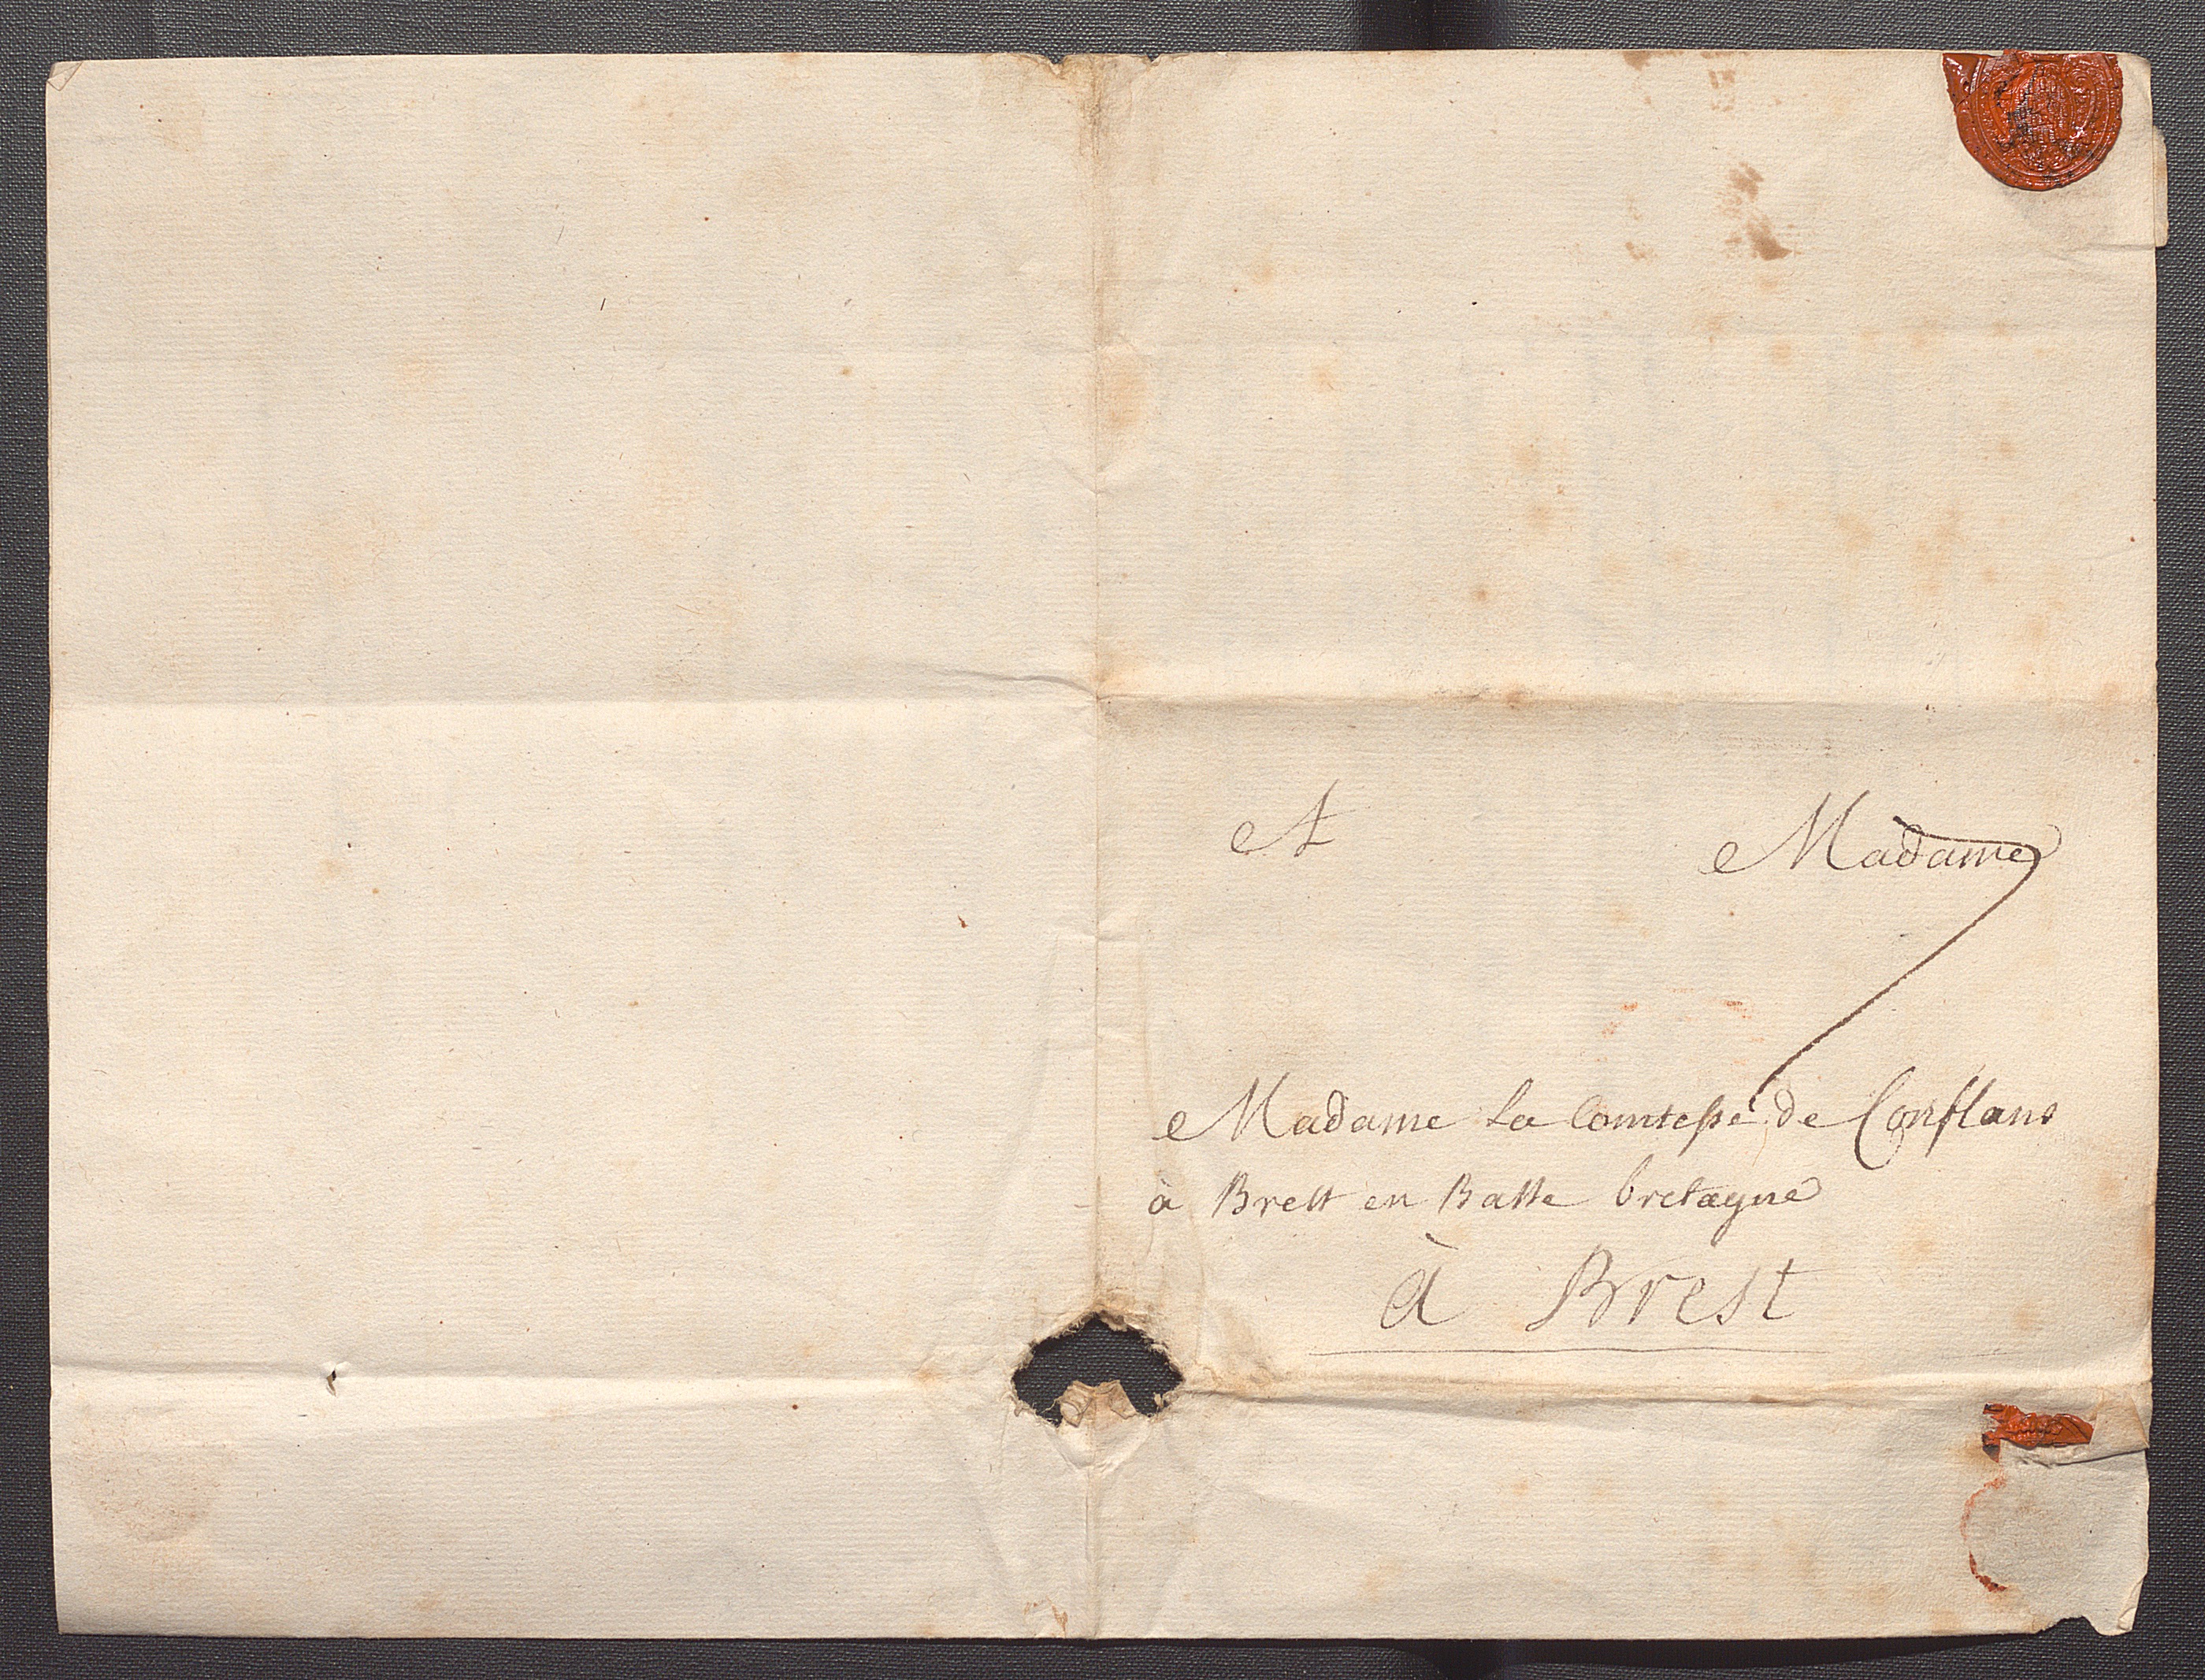 A Madame
Madame La Comtesse de Conflans
à Brest en Basse bretagne
à Brest